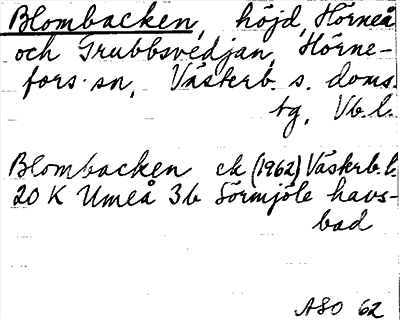 Blombacken, höjd, Hörneå
och Grubbsvedjan, Hörne-
fors sn, Västerb. s. doms.
tg, Vb.l.
Blombacken ek (1962) Västerb.l.
20 K Umeå 3b Sörmjöle havs-
bad
ASO 62